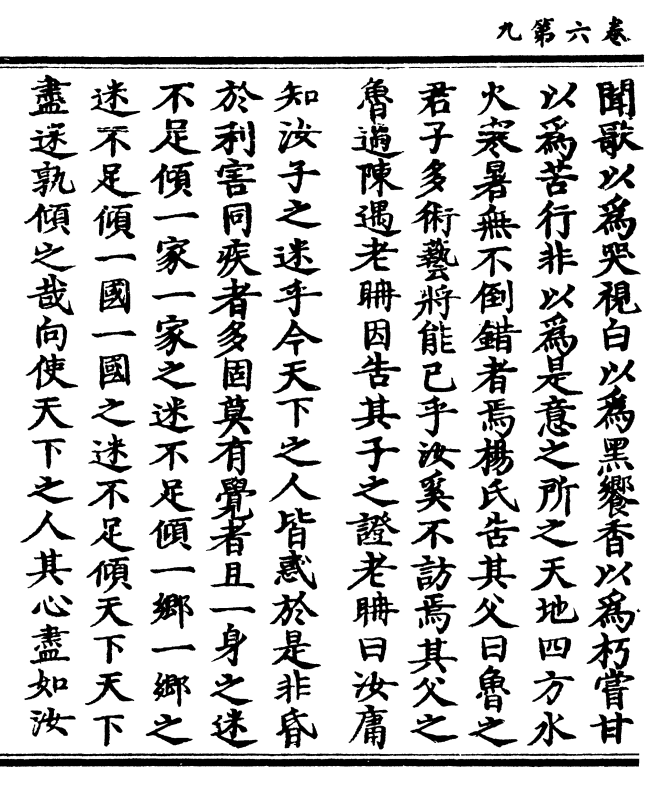 卷六第九
聞歌以爲哭視白以爲黑饗香以爲朽嘗甘
以爲苦行非以爲是意之所之天地四方水
火寒暑無不倒錯者焉楊氏告其父曰魯之
君子多術藝將能已乎汝奚不訪焉其父之
魯過陳遇老聃因告其子之證老聃曰汝庸
知汝子之迷乎今天下之人皆惑於是非昏
於利害同疾者多固莫有覺者且一身之迷
不足傾一家一家之迷不足傾一鄉一鄉之
迷不足傾一國一國之迷不足傾天下天下
盡迷孰傾之哉向使天下之人其心盡如汝